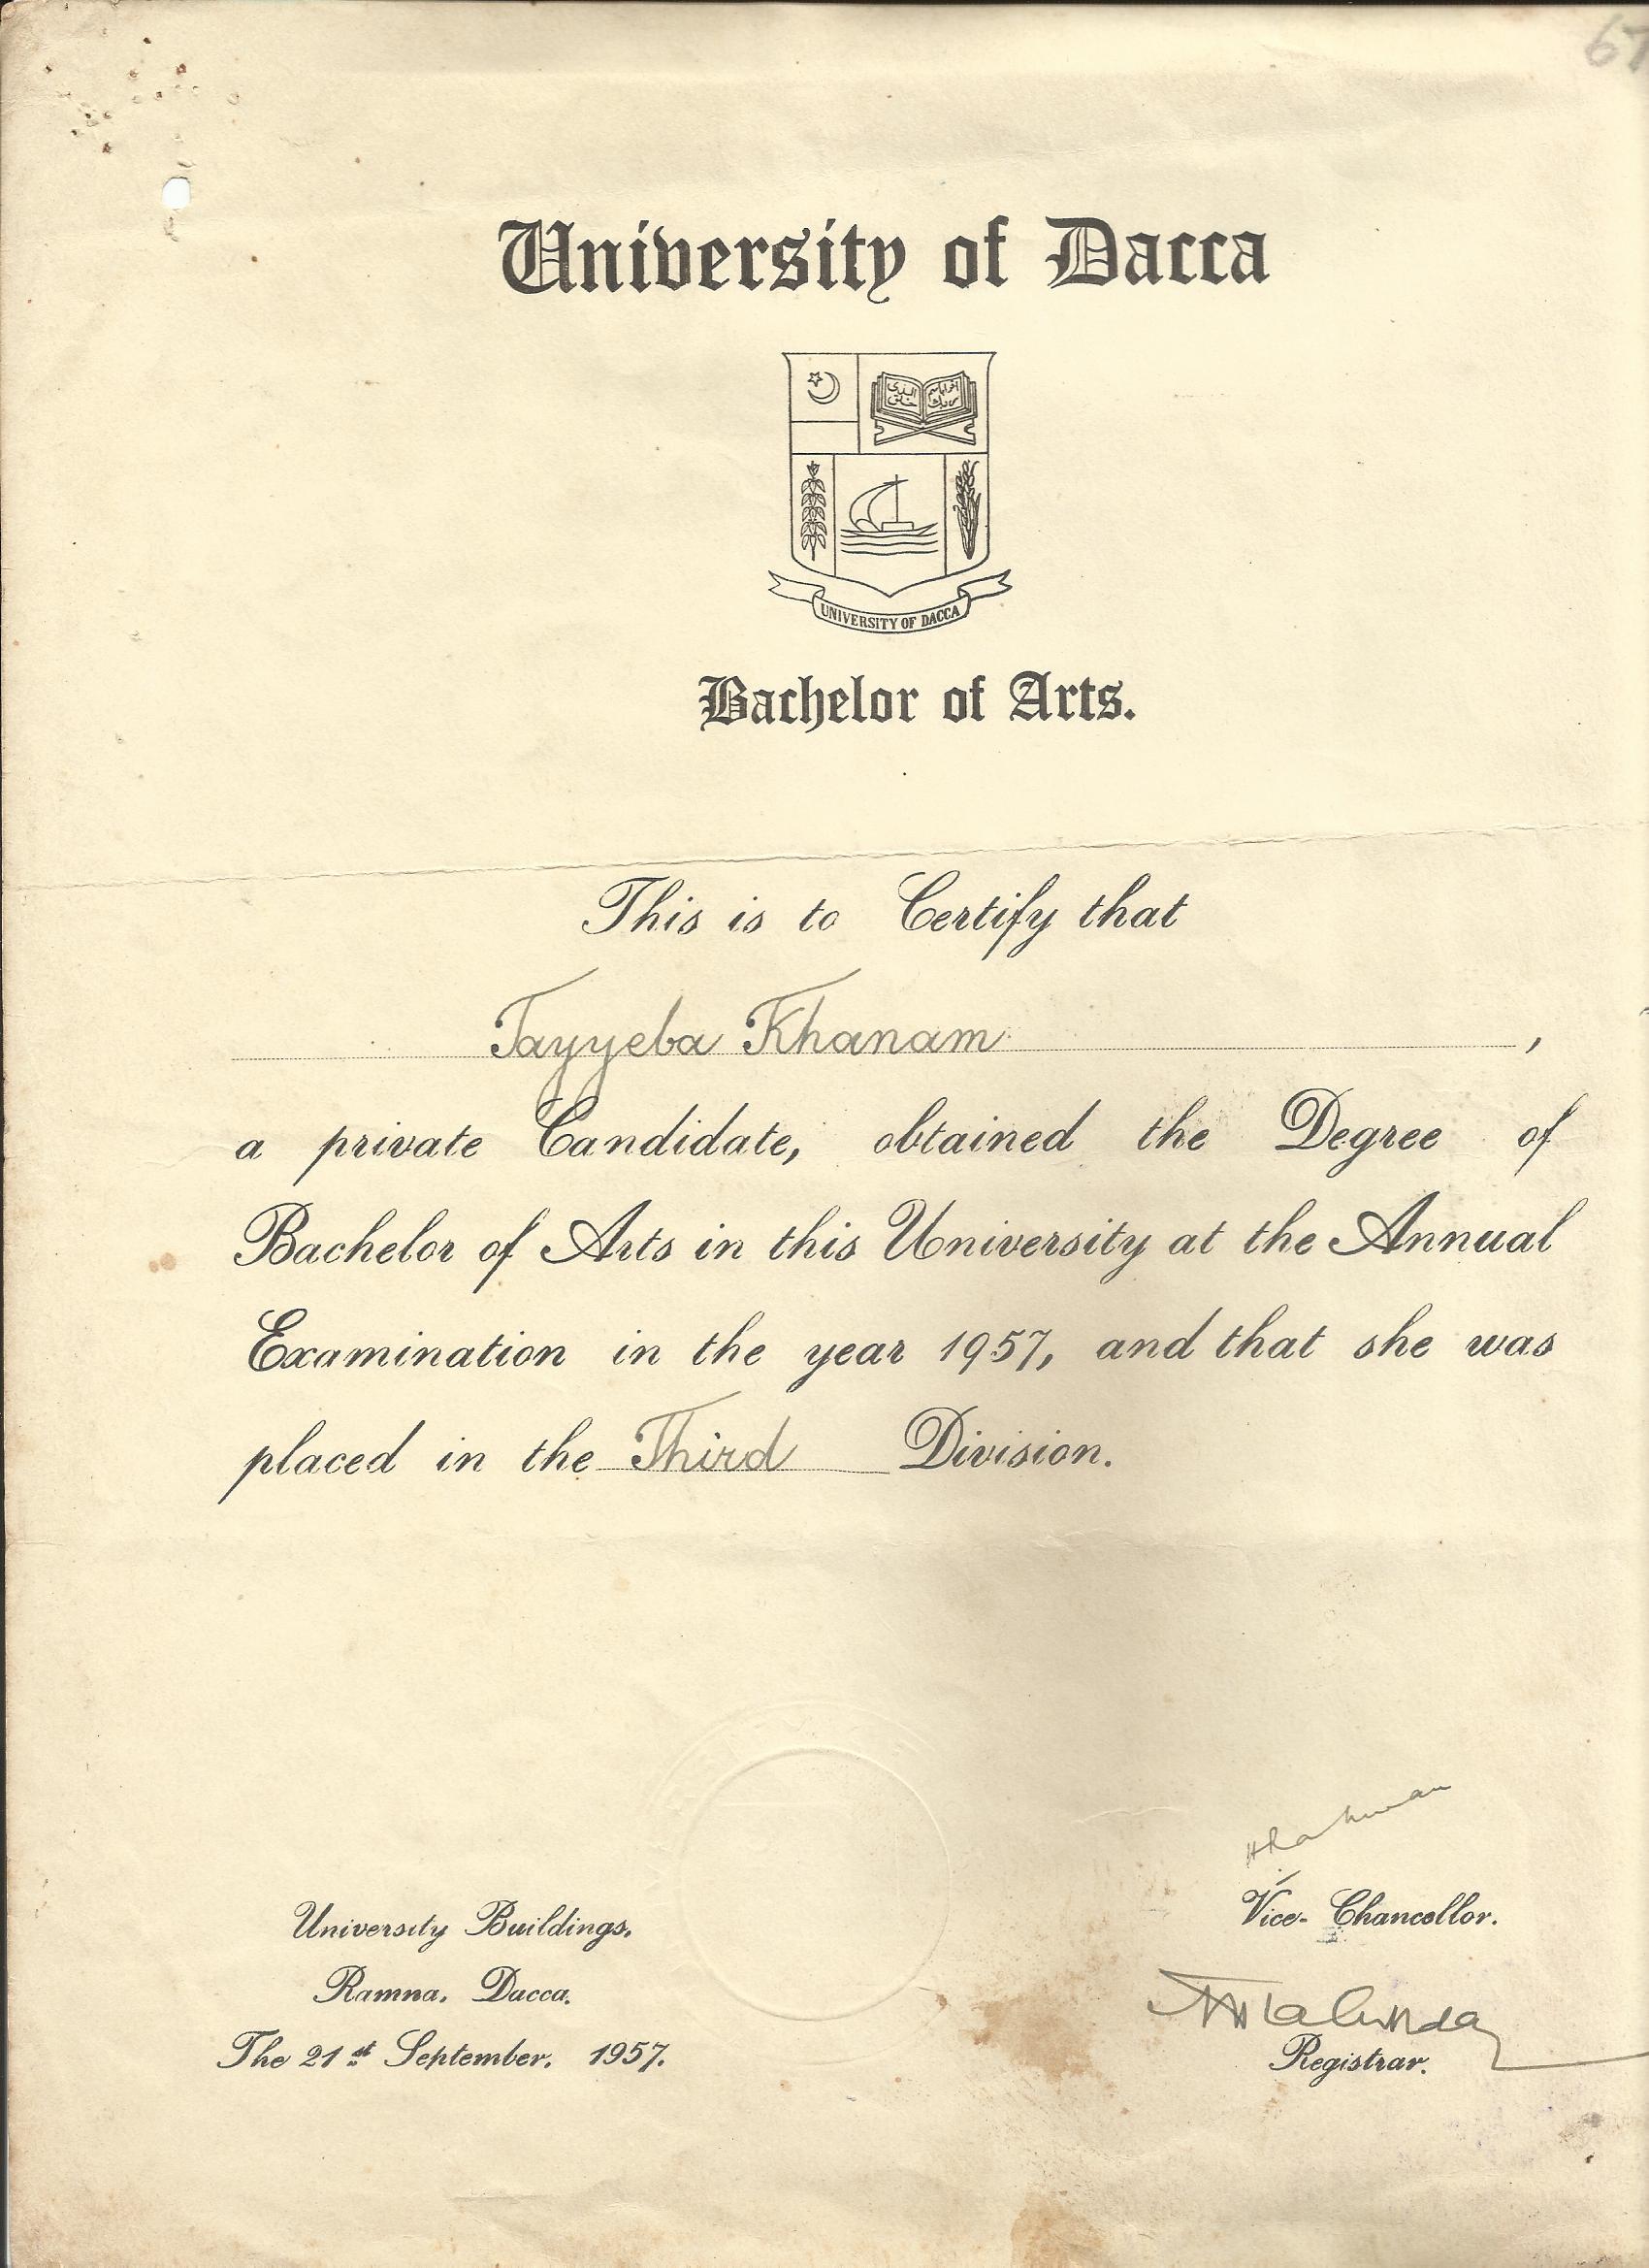 67
University of Dacca
الذى خلق
اقرا باسم ربك
UNIVERSITY OF DACCA
Bachelor of Arts.
This is to Certify that
Tayyeba Khanam,
a private Candidate, obtained the Degree of
Bachelor of Arts in this University at the Annual
Examination in the year 1957, and that she was
placed in the Third Division.
University Buildings,
Ramna, Dacca,
The 21st September, 1957.
Vice-Chancellor.
Registrar.